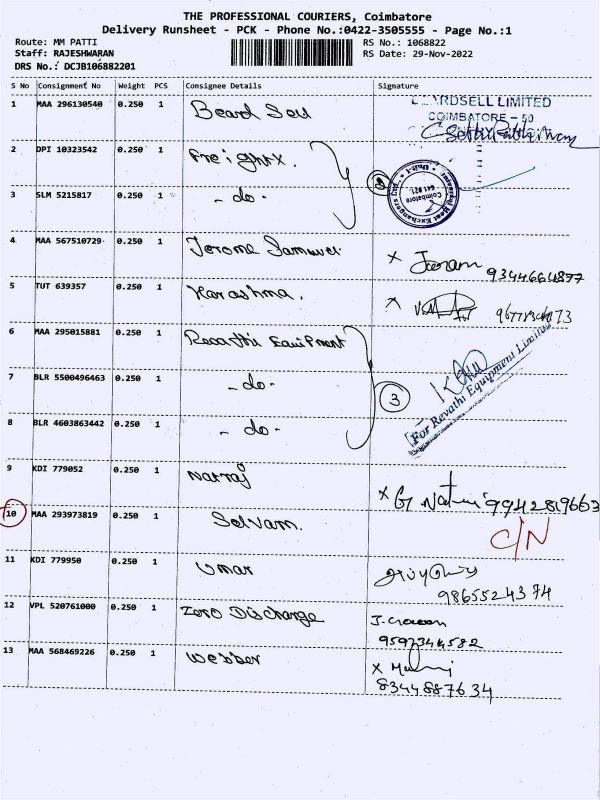 THE PROFESSIONAL COURIERS, Coimbatore
Delivery Runsheet - PCK - Phone No.:0422-3505555 - Page No.:1
Route: MM PATTI RS No.: 1068822
Staff: RAJESHWARAN RS Date: 29-Nov-2022
DRS No.: DCJB106882201
S No Consignment No Weight PCS Consignee Details Signature
1 MAA 296130540 0.250 1 Beard Sell
RDSELL LIMITED
COIMBATORE - 50
2 DPI 10323542 0.250 1 Freightx.
3 SLM 5215817 0.250 1 - do - 2
Heat Exchangers
Unit-1
Coimbatore
641 021.
4 MAA 567510729 0.250 1 Jerome Samuvel x 9344664877
5 TUT 639357 0.250 1 Karashma.
6 MAA 295015881 0.250 1 Revathi Equipment
7 BLR 5500496463 0.250 1 - do - 3
For Revathi Equipment Limited
8 BLR 4603863442 0.250 1 - do -
9 KDI 779052 0.250 1 Natraj x 9942819663
10 MAA 293973819 0.250 1 Selvam. C/N
11 KDI 779950 0.250 1 Umar
9865524374
12 VPL 520761000 0.250 1 Zero Discharge
9597344582
13 MAA 568469226 0.250 1 webber x
8344887634